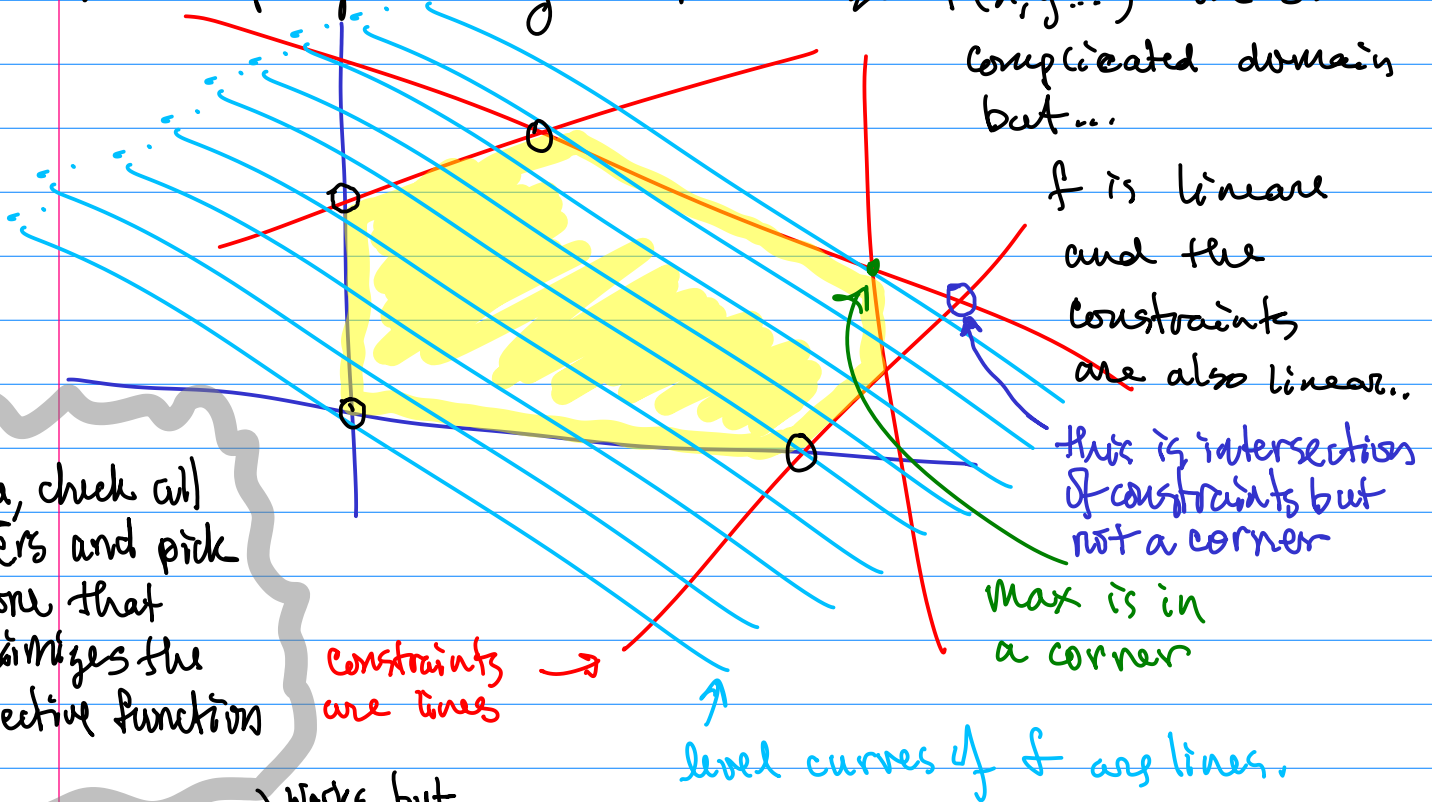 complicated domain
but...
f is lineare
and the
constraints
are also linear..
this is intersection
of constraints but
not a corner
max is in
a corner
check all
ers and pick
one that
imizes the
ective function
constraints
are lines
level curves of f are lines.
works but